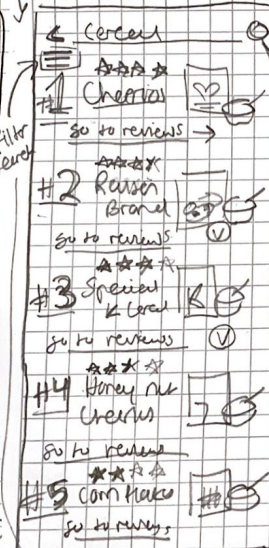 < Cereal
#1 Cheerios
go to reviews →
Filter
Search
#2 Raisin
Brand
go to reviews
V
#3 Special
K Cereal
K
go to reviews
V
#4 Honey nut
Cheerios
go to reviews
#5 Corn flakes
go to reviews